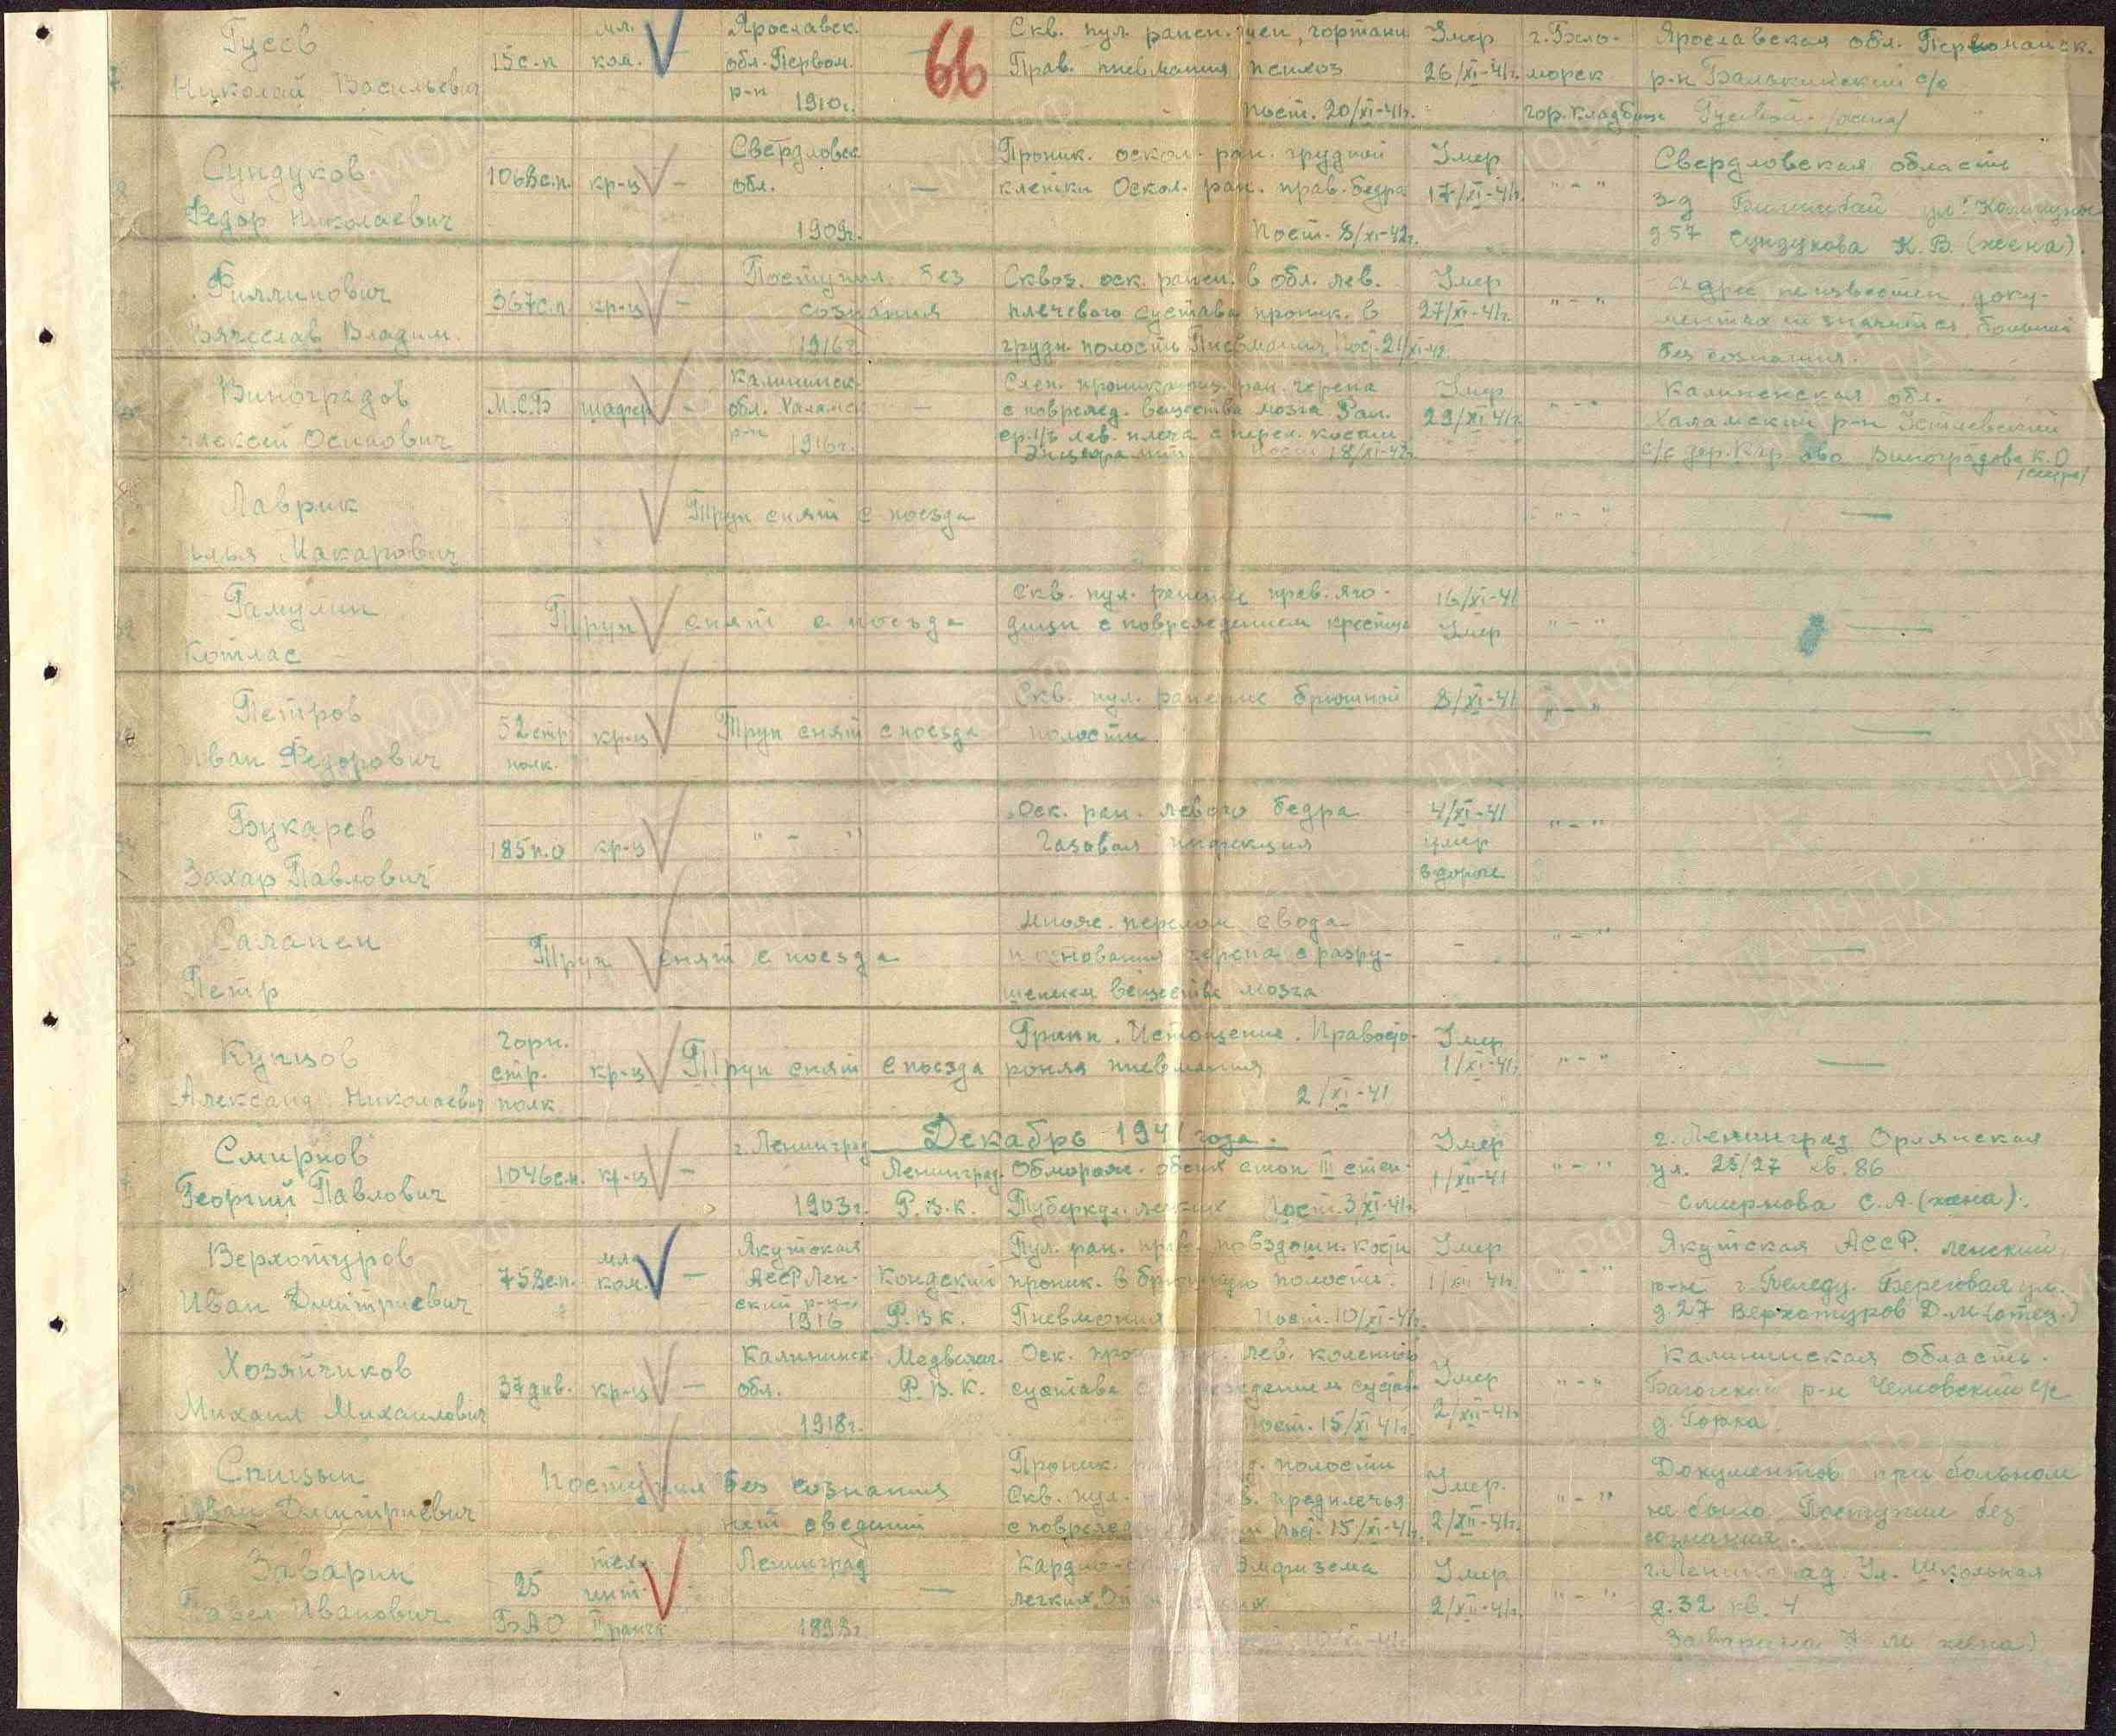 Гусев
Николай Васильевич
15 с.п
мл. ком.
Ярославск.
обл. Первом.
р-н
1910г.
66
Скв. пул. ранен. шеи, гортани
Прав. пневмания психоз
пост. 20/XI-41г.
Умер
26/XI-41г.
г. Бело-
морск
гор. кладбище
Ярославская обл. Первомайск.
р-н с/с
Гусевой /жена/
Сундуков
Федор Николаевич
1068 с.п.
кр-ц
—
Свердловск
обл.
1909г.
—
Проник. оскол. ран. грудной
клетки Оскол. ран. прав. бедра
Пост. 8/XI-42г.
Умер
17/XI-41г.
" - "
Свердловская область
з-д Билимбай ул. Коммуны
д 57 Сундукова К. В. (жена).
Филлинович
Вячеслав Владим.
367 с.п
кр-ц
—
Поступил без
сознания
1916г.
Сквоз. оск. ранен. в обл. лев.
плечевого сустава проник. в
грудн. полость Пневмания Пост. 21/XI-42.
Умер
27/XI-41г.
" - "
Адрес неизвестен, доку-
ментах не значится больной
без сознания.
Виноградов
Алексей Осипович
М.С.Б
шофер
—
Калининск.
обл.
р-н
1916г.
—
Слеп. проникающ. ран. черепа
с поврежд. вещества мозга Ран.
ср. 1/3 лев. плеча с перел. кости
18/XI-42г.
Умер
29/XI-41г.
" - "
Калиненская обл.
р-н
с/с дер. Виноградова К.О
/сестра/
Лаврик
Илья Макарович
Труп снят с поезда
" - "
—
Гамулин
Котлас
Труп снят с поезда
Скв. пул. ранение прав. яго-
дицы с повреждением крестца
16/XI-41
Умер
" - "
—
Петров
Иван Федорович
52 стр.
полк.
кр-ц
Труп снят с поезда
Скв. пул. ранение брюшной
полости.
8/XI-41
" - "
—
Букарев
Захар Павлович
185 п.о
кр-ц
" - "
Оск. ран. левого бедра
Газовая инфекция
4/XI-41
умер
в дороге
" - "
Саланен
Петр
Труп снят с поезда
Множ. перелом свода
и основания черепа с разру-
шением вещества мозга
-
" - "
—
Купцов
Александр Николаевич
горн.
стр.
полк
кр-ц
Труп снят с поезда
Грипп. Истощение. Правосто-
роняя пневмания
2/XI-41
Умер
1/XI-41г.
" - "
—
Декабрь 1941 года.
Смирнов
Георгий Павлович
1046 с.п.
кр-ц
—
г. Ленинград
1903г.
Ленинград.
Р.В.К.
Обморож. обоих стоп III степ.
Туберкул. легких Пост. 3/XI-41г.
Умер
1/XII-41
" - "
г. Ленинград
ул. 25/27 кв. 86
Смирнова С.А. (жена).
Верхотуров
Иван Дмитриевич
758 с.п.
мл.
ком.
—
Якутская
АССР Лен-
ский р-н,
1916
Кондский
Р.В.К.
Пул. ран. прав. повздошн. кости
проник. в брюшную полость.
Пневмония Пост. 10/XI-41г.
Умер
1/XII 41г.
" - "
Якутская АССР. Ленский
р-н г. Пеледу. Береговая ул.
д. 27 Верхотуров Д.М. (отец.)
Хозяйчиков
Михаил Михаилович
37 див.
кр-ц
—
Калининск.
обл.
1918г.
Медвежег.
Р.В.К.
Оск. лев. коленного
сустава с сустав.
Пост. 15/XI 41г.
Умер
2/XII-41г.
" - "
Калининская область.
р-н с/с
д. Горка.
Спицын
Иван Дмитриевич
Поступил без сознания
нет сведений
Проник. полости
Скв. пул. предплечья
с поврежд. Пост. 15/XI-41г.
Умер.
2/XII-41г.
" - "
Документов при больном
не было. Поступил без
сознания.
Заварин
Павел Иванович
25
БАО
тех.
инт.
II ранга
Ленинград
1893г.
—
Эмфизема
легких.
10/XI-41г.
Умер
2/XII-41г.
" - "
г. Ленинград. Ул. Школьная
д. 32 кв. 4
Заварина жена)